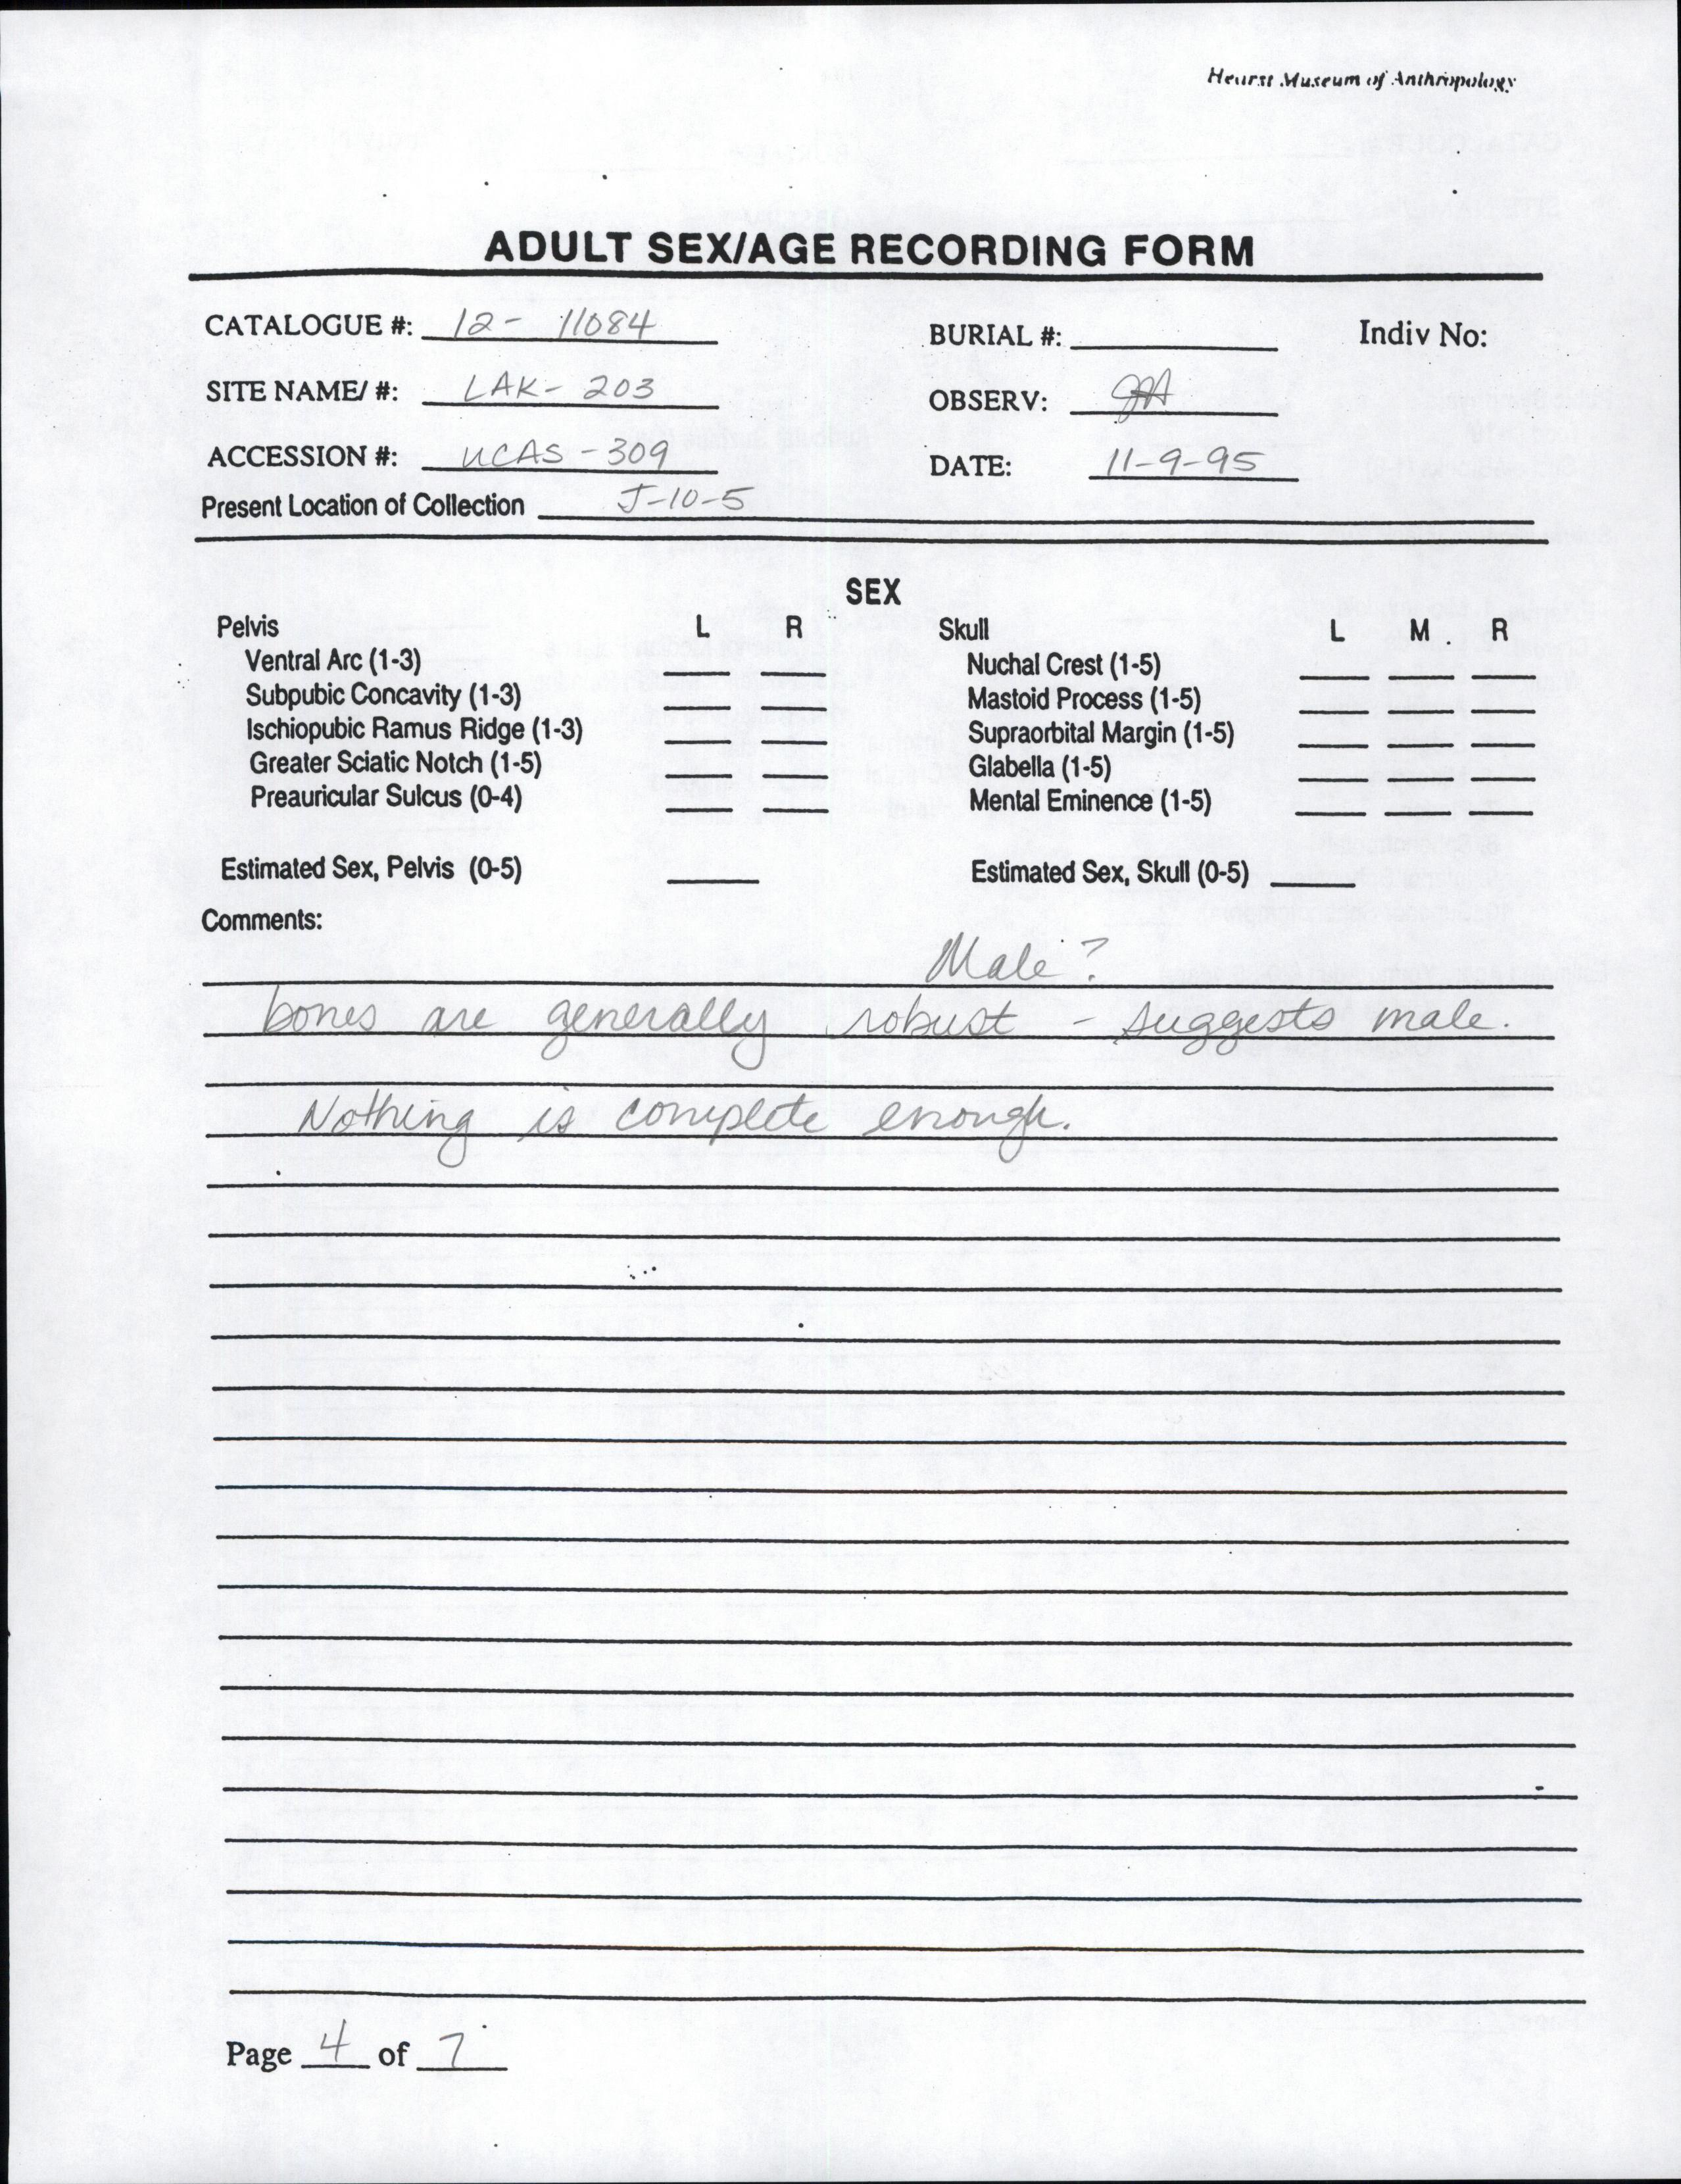 Hearst Museum of Anthropology
ADULT SEX/AGE RECORDING FORM
CATALOGUE #: 12- 11084 BURIAL #: Indiv No:
SITE NAME/ #: LAK- 203 OBSERV:
ACCESSION #: UCAS - 309 DATE: 11-9-95
Present Location of Collection J-10-5
SEX
Pelvis L R
Ventral Arc (1-3)
Subpubic Concavity (1-3)
Ischiopubic Ramus Ridge (1-3)
Greater Sciatic Notch (1-5)
Preauricular Sulcus (0-4)
Estimated Sex, Pelvis (0-5)
Skull L M R
Nuchal Crest (1-5)
Mastoid Process (1-5)
Supraorbital Margin (1-5)
Glabella (1-5)
Mental Eminence (1-5)
Estimated Sex, Skull (0-5)
Comments:
Male?
bones are generally robust - suggests male.
Nothing is complete enough.
Page 4 of 7